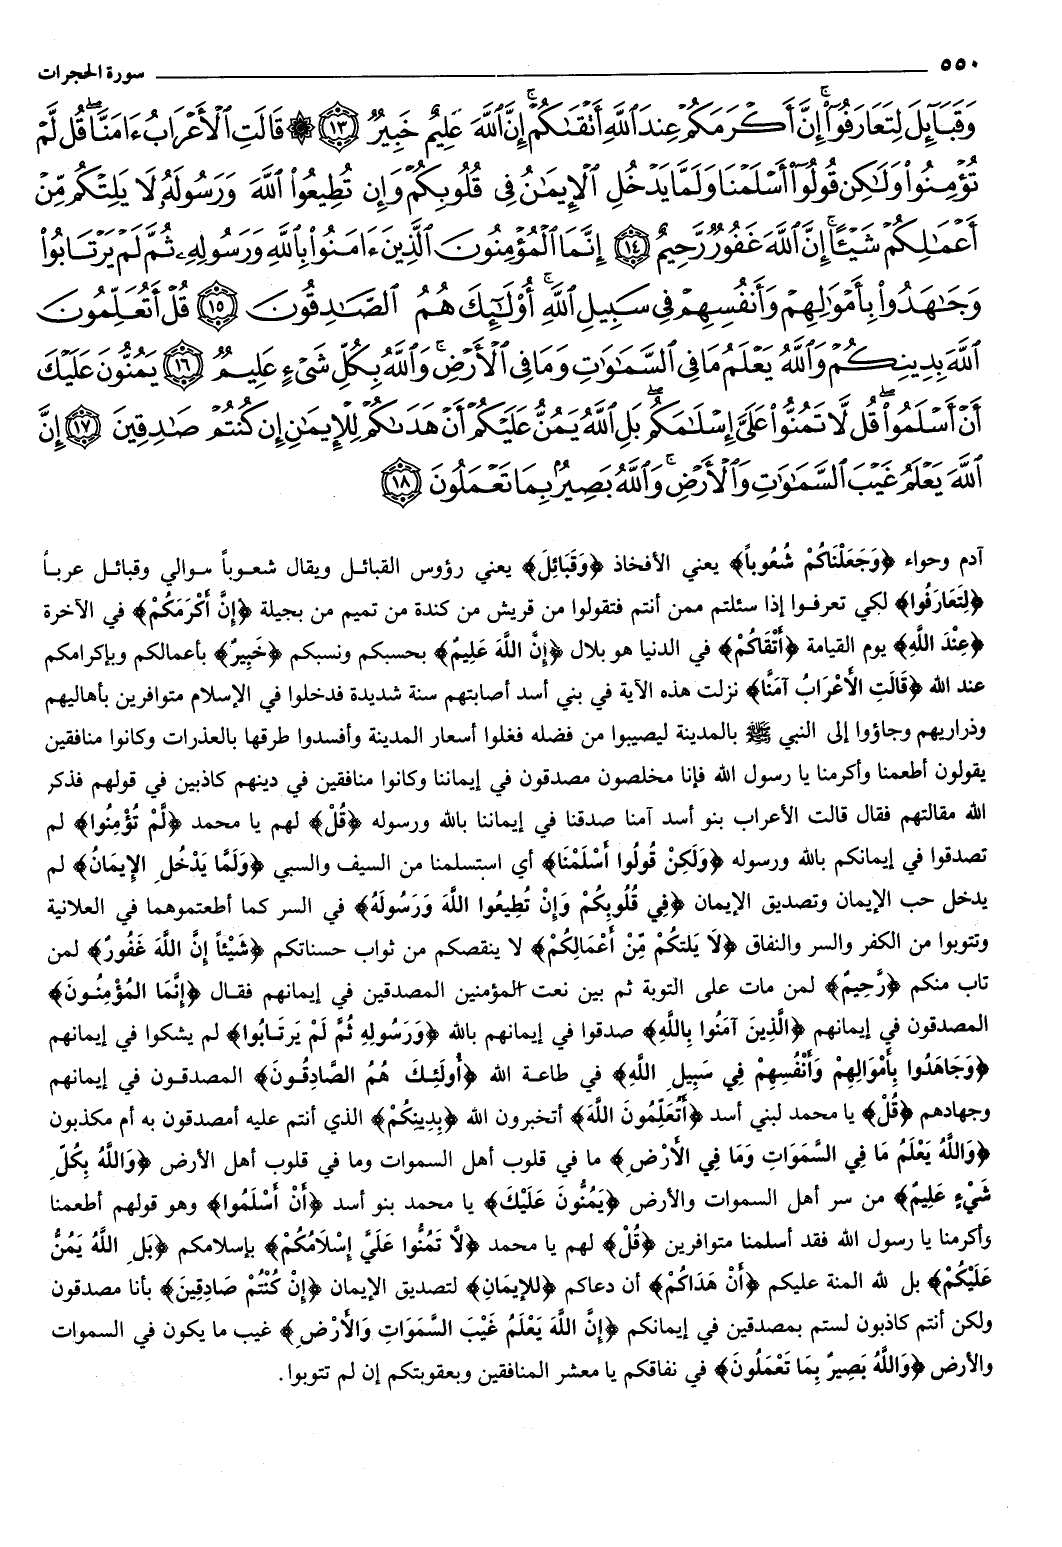 ٥٥٠ سورة الحجرات
وَقَبَآئِلَ لِتَعَارَفُوٓا۟ ۚ إِنَّ أَكْرَمَكُمْ عِندَ ٱللَّهِ أَتْقَىٰكُمْ ۚ إِنَّ ٱللَّهَ عَلِيمٌ خَبِيرٌ ۝١٣ ۞ قَالَتِ ٱلْأَعْرَابُ ءَامَنَّا ۖ قُل لَّمْ
تُؤْمِنُوا۟ وَلَٰكِن قُولُوٓا۟ أَسْلَمْنَا وَلَمَّا يَدْخُلِ ٱلْإِيمَٰنُ فِى قُلُوبِكُمْ ۖ وَإِن تُطِيعُوا۟ ٱللَّهَ وَرَسُولَهُۥ لَا يَلِتْكُم مِّنْ
أَعْمَٰلِكُمْ شَيْـًٔا ۚ إِنَّ ٱللَّهَ غَفُورٌ رَّحِيمٌ ۝١٤ إِنَّمَا ٱلْمُؤْمِنُونَ ٱلَّذِينَ ءَامَنُوا۟ بِٱللَّهِ وَرَسُولِهِۦ ثُمَّ لَمْ يَرْتَابُوا۟
وَجَٰهَدُوا۟ بِأَمْوَٰلِهِمْ وَأَنفُسِهِمْ فِى سَبِيلِ ٱللَّهِ ۚ أُو۟لَٰٓئِكَ هُمُ ٱلصَّٰدِقُونَ ۝١٥ قُلْ أَتُعَلِّمُونَ
ٱللَّهَ بِدِينِكُمْ وَٱللَّهُ يَعْلَمُ مَا فِى ٱلسَّمَٰوَٰتِ وَمَا فِى ٱلْأَرْضِ ۚ وَٱللَّهُ بِكُلِّ شَىْءٍ عَلِيمٌ ۝١٦ يَمُنُّونَ عَلَيْكَ
أَنْ أَسْلَمُوا۟ ۖ قُل لَّا تَمُنُّوا۟ عَلَىَّ إِسْلَٰمَكُم ۖ بَلِ ٱللَّهُ يَمُنُّ عَلَيْكُمْ أَنْ هَدَىٰكُمْ لِلْإِيمَٰنِ إِن كُنتُمْ صَٰدِقِينَ ۝١٧ إِنَّ
ٱللَّهَ يَعْلَمُ غَيْبَ ٱلسَّمَٰوَٰتِ وَٱلْأَرْضِ ۚ وَٱللَّهُ بَصِيرٌۢ بِمَا تَعْمَلُونَ ۝١٨
آدم وحواء ﴿وَجَعَلْنَاكُمْ شُعُوباً﴾ يعني الأفخاذ ﴿وَقَبَائِلَ﴾ يعني رؤوس القبائل ويقال شعوباً موالي وقبائل عرباً
﴿لِتَعَارَفُوا﴾ لكي تعرفوا إذا سئلتم ممن أنتم فتقولوا من قريش من كندة من تميم من بجيلة ﴿إِنَّ أَكْرَمَكُمْ﴾ في الآخرة
﴿عِنْدَ اللَّهِ﴾ يوم القيامة ﴿أَتْقَاكُمْ﴾ في الدنيا هو بلال ﴿إِنَّ اللَّهَ عَلِيمٌ﴾ بحسبكم ونسبكم ﴿خَبِيرٌ﴾ بأعمالكم وبإكرامكم
عند الله ﴿قَالَتِ الأَعْرَابُ آمَنَّا﴾ نزلت هذه الآية في بني أسد أصابتهم سنة شديدة فدخلوا في الإسلام متوافرين بأهاليهم
وذراريهم وجاؤوا إلى النبي ﷺ بالمدينة ليصيبوا من فضله فغلوا أسعار المدينة وأفسدوا طرقها بالعذرات وكانوا منافقين
يقولون أطعمنا وأكرمنا يا رسول الله فإنا مخلصون مصدقون في إيماننا وكانوا منافقين في دينهم كاذبين في قولهم فذكر
الله مقالتهم فقال قالت الأعراب بنو أسد آمنا صدقنا في إيماننا بالله ورسوله ﴿قُلْ﴾ لهم يا محمد ﴿لَّمْ تُؤْمِنُوا﴾ لم
تصدقوا في إيمانكم بالله ورسوله ﴿وَلَكِنْ قُولُوا أَسْلَمْنَا﴾ أي استسلمنا من السيف والسبي ﴿وَلَمَّا يَدْخُلِ الإِيمَانُ﴾ لم
يدخل حب الإيمان وتصديق الإيمان ﴿فِي قُلُوبِكُمْ وَإِنْ تُطِيعُوا اللَّهَ وَرَسُولَهُ﴾ في السر كما أطعتموهما في العلانية
وتتوبوا من الكفر والسر والنفاق ﴿لَا يَلتكُمْ مِّنْ أَعْمَالِكُمْ﴾ لا ينقصكم من ثواب حسناتكم ﴿شَيْئاً إِنَّ اللَّهَ غَفُورٌ﴾ لمن
تاب منكم ﴿رَّحِيمٌ﴾ لمن مات على التوبة ثم بين نعت المؤمنين المصدقين في إيمانهم فقال ﴿إِنَّمَا المُؤْمِنُونَ﴾
المصدقون في إيمانهم ﴿الَّذِينَ آمَنُوا بِاللَّهِ﴾ صدقوا في إيمانهم بالله ﴿وَرَسُولِهِ ثُمَّ لَمْ يَرتَابُوا﴾ لم يشكوا في إيمانهم
﴿وَجَاهَدُوا بِأَمْوَالِهِمْ وَأَنْفُسِهِمْ فِي سَبِيلِ اللَّهِ﴾ في طاعة الله ﴿أُولَئِكَ هُمُ الصَّادِقُونَ﴾ المصدقون في إيمانهم
وجهادهم ﴿قُلْ﴾ يا محمد لبني أسد ﴿أَتُعَلِّمُونَ اللَّهَ﴾ أتخبرون الله ﴿بِدِينِكُمْ﴾ الذي أنتم عليه أمصدقون به أم مكذبون
﴿وَاللَّهُ يَعْلَمُ مَا فِي السَّمَوَاتِ وَمَا فِي الأَرْضِ﴾ ما في قلوب أهل السموات وما في قلوب أهل الأرض ﴿وَاللَّهُ بِكُلِّ
شَيْءٍ عَلِيمٌ﴾ من سر أهل السموات والأرض ﴿يَمُنُّونَ عَلَيْكَ﴾ يا محمد بنو أسد ﴿أَنْ أَسْلَمُوا﴾ وهو قولهم أطعمنا
وأكرمنا يا رسول الله فقد أسلمنا متوافرين ﴿قُلْ﴾ لهم يا محمد ﴿لَّا تَمُنُّوا عَلَيَّ إِسْلَامُكُمْ﴾ بإسلامكم ﴿بَلِ اللَّهُ يَمُنُّ
عَلَيْكُمْ﴾ بل لله المنة عليكم ﴿أَنْ هَدَاكُمْ﴾ أن دعاكم ﴿لِلإِيمَانِ﴾ لتصديق الإيمان ﴿إِنْ كُنْتُمْ صَادِقِينَ﴾ بأنا مصدقون
ولكن أنتم كاذبون لستم بمصدقين في إيمانكم ﴿إِنَّ اللَّهَ يَعْلَمُ غَيْبَ السَّمَوَاتِ وَالأَرْضِ﴾ غيب ما يكون في السموات
والأرض ﴿وَاللَّهُ بَصِيرٌ بِمَا تَعْمَلُونَ﴾ في نفاقكم يا معشر المنافقين وبعقوبتكم إن لم تتوبوا.